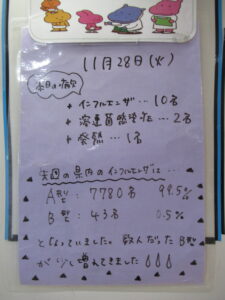 11月28日(火)
本日の病欠
インフルエンザ… 10名
溶連菌感染症… 2名
発熱… 1名
先週の県内のインフルエンザは…
A型：7780名 99.5%
B型：43名 0.5%
となっていました。散んだったB型
が少し増えてきました